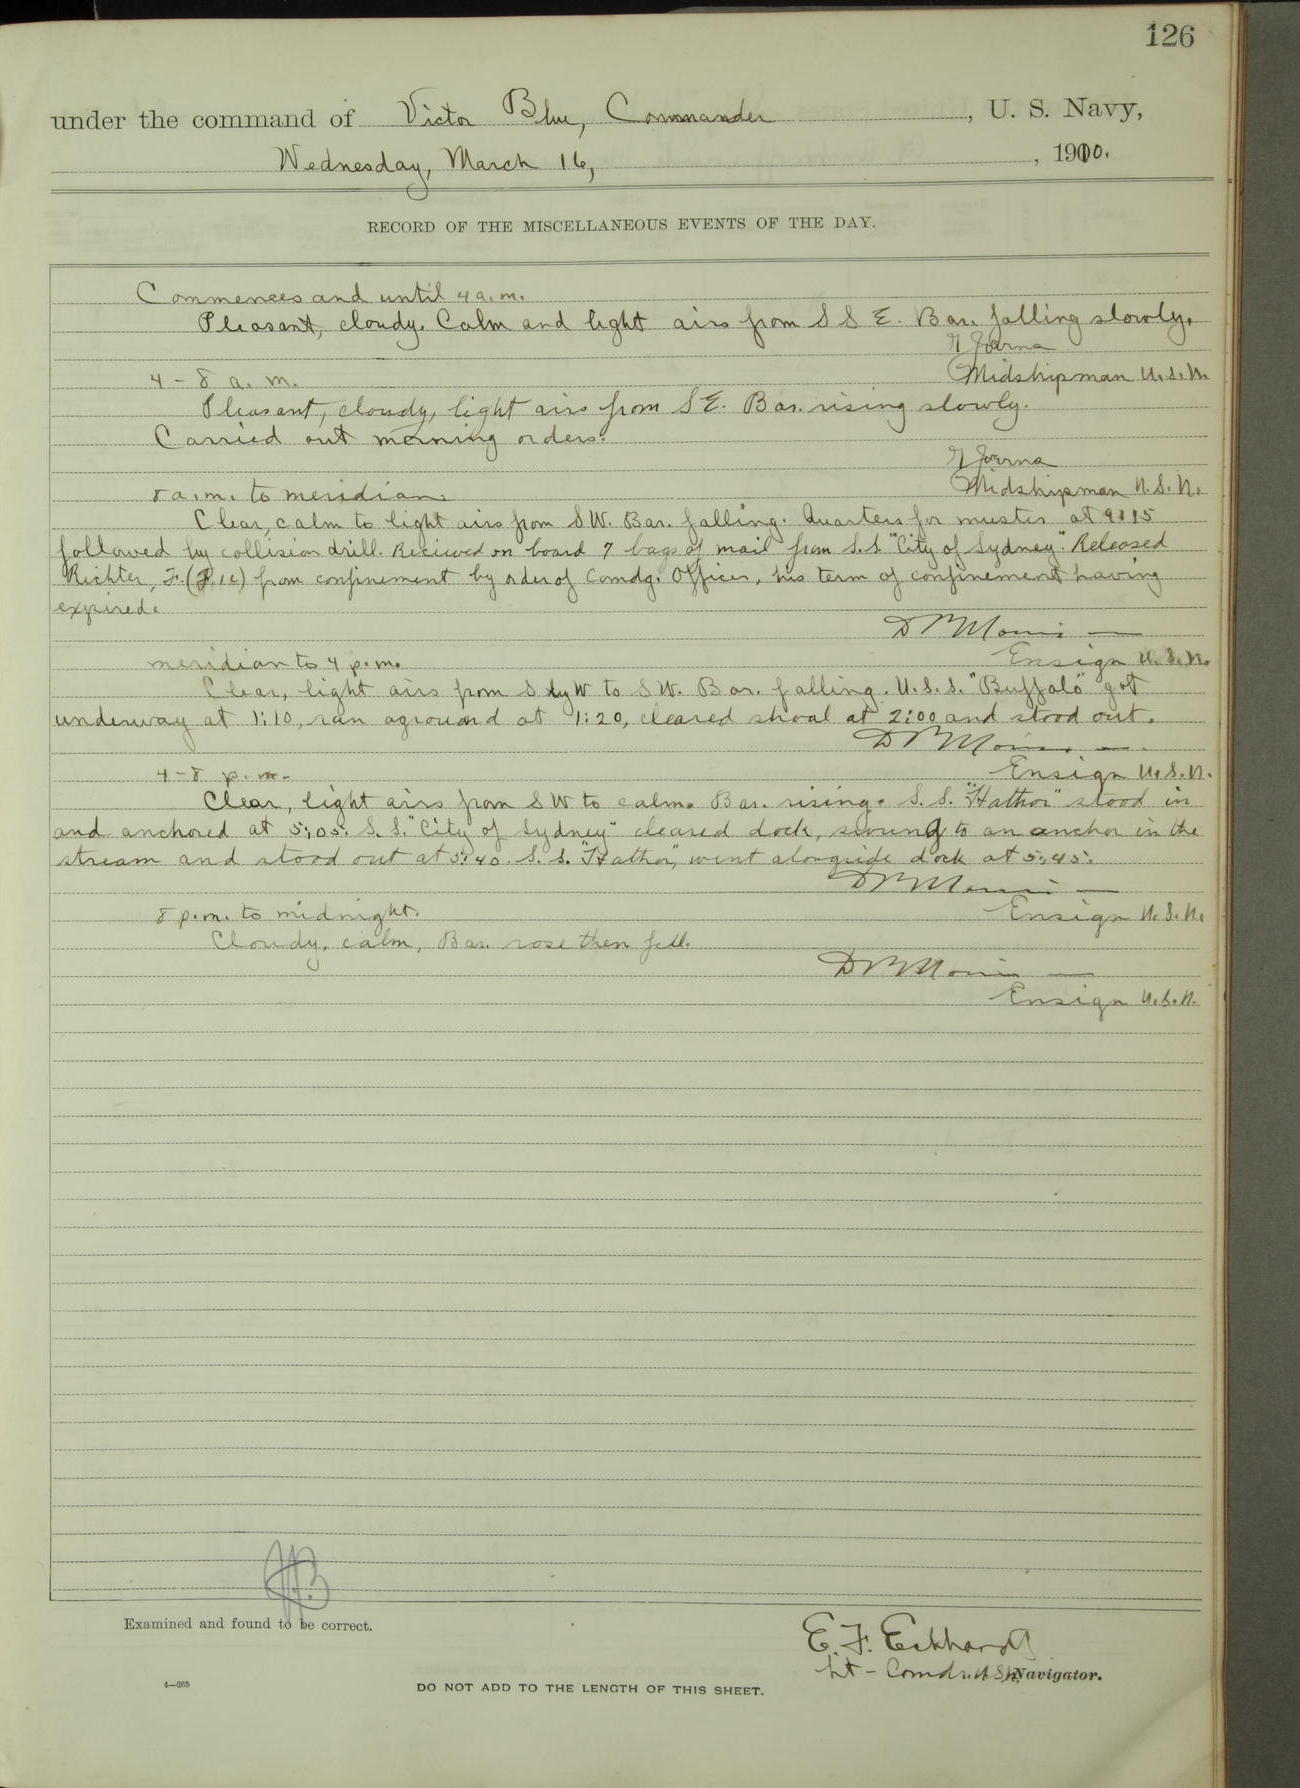 126
under the command of Victor Blue, Commander, U. S. Navy,
Wednesday, March 16, 1910.
RECORD OF THE MISCELLANEOUS EVENTS OF THE DAY.
Commences and until 4 a.m.
Pleasant, cloudy. Calm and light airs from S S E. Bar. falling slowly.
4 - 8 a. m.
Midshipman U.S.N.
Pleasant, cloudy, light airs from SE. Bar. rising slowly.
Carried out morning orders.
8 a.m. to meridian.
Midshipman U.S.N.
Clear, calm to light airs from SW. Bar. falling. Quarters for muster at 9:15
followed by collision drill. Recieved on board 7 bags of mail from S.S. "City of Sydney". Released
Richter, F. from confinement by order of Comdg. Officer, his term of confinement having
expired.
meridian to 4 p.m.
Ensign U.S.N.
Clear, light airs from S by W to SW. Bar. falling. U.S.S. "Buffalo" got
underway at 1:10, ran aground at 1:20, cleared shoal at 2:00 and stood out.
4-8 p.m.
Ensign U.S.N.
Clear, light airs from SW to calm. Bar. rising. S.S. "Hathor" stood in
and anchored at 5:05. S.S. "City of Sydney" cleared dock, swung to an anchor in the
stream and stood out at 5:40. S.S. "Hathor", went alongside dock at 5:45.
8 p.m. to midnight.
Ensign U.S.N.
Cloudy, calm, Bar. rose then fell.
Ensign U.S.N.
Examined and found to be correct.
E. F. Eckhardt
Lt - Comdr. U.S.N., Navigator.
4—265
DO NOT ADD TO THE LENGTH OF THIS SHEET.